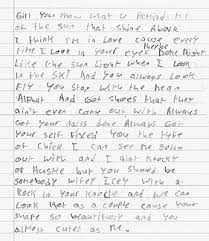 Girl You Know what u Remind Me
of the sun that shine Above
I think I'm in Love cause every
time I Look in your eyes Maybe Done Right
Like the sun Light when I Look
in the Ski And you Always Look
Fly. You stay with the mean
And Got shoes that they
ain't even came out with Always
Got your nails Done Always Got
Your self Fixed You the type
of Chick I can see Me
out with And I aint Knocky
or Hustle but You should be
somebody wifey Icey With a
Rock in Your Knogle And We can
Look Hot as a couple cause Your
shape so beautifully and you
Almost cutes as Me.